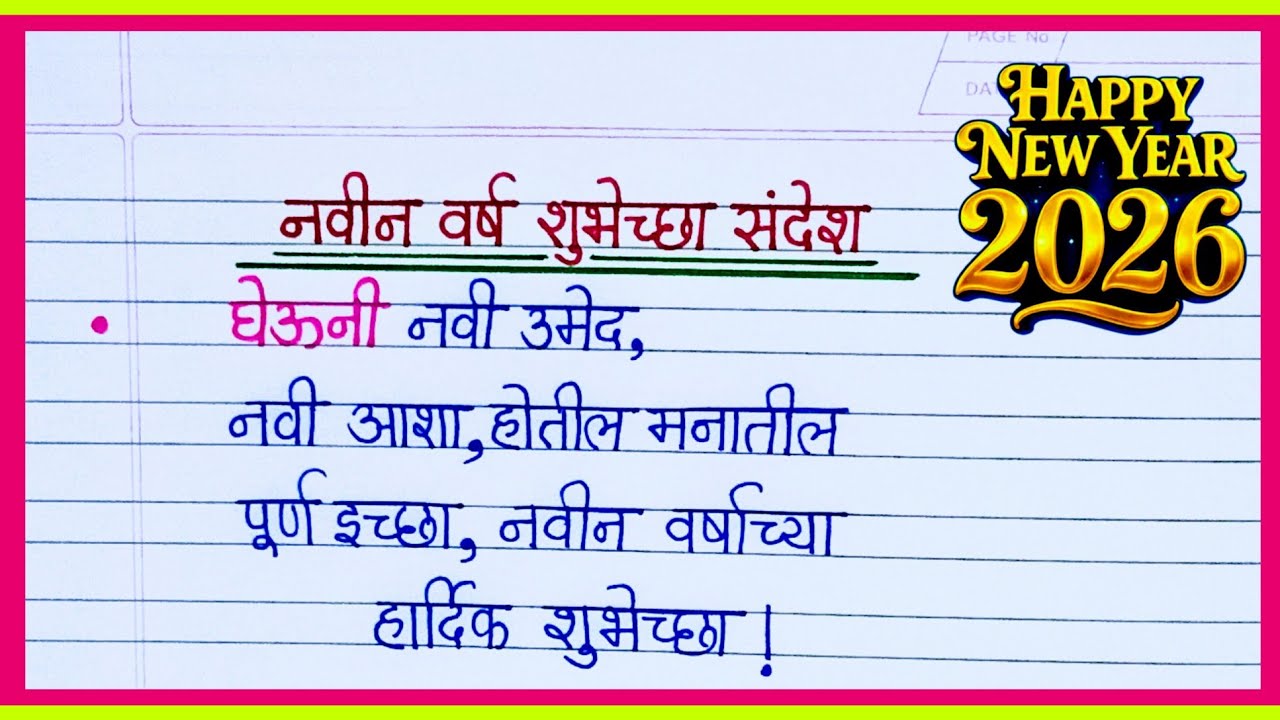 PAGE No
HAPPY
NEW YEAR
2026
नवीन वर्ष शुभेच्छा संदेश
• घेऊनी नवी उमेद,
नवी आशा,होतील मनातील
पूर्ण इच्छा, नवीन वर्षाच्या
हार्दिक शुभेच्छा !